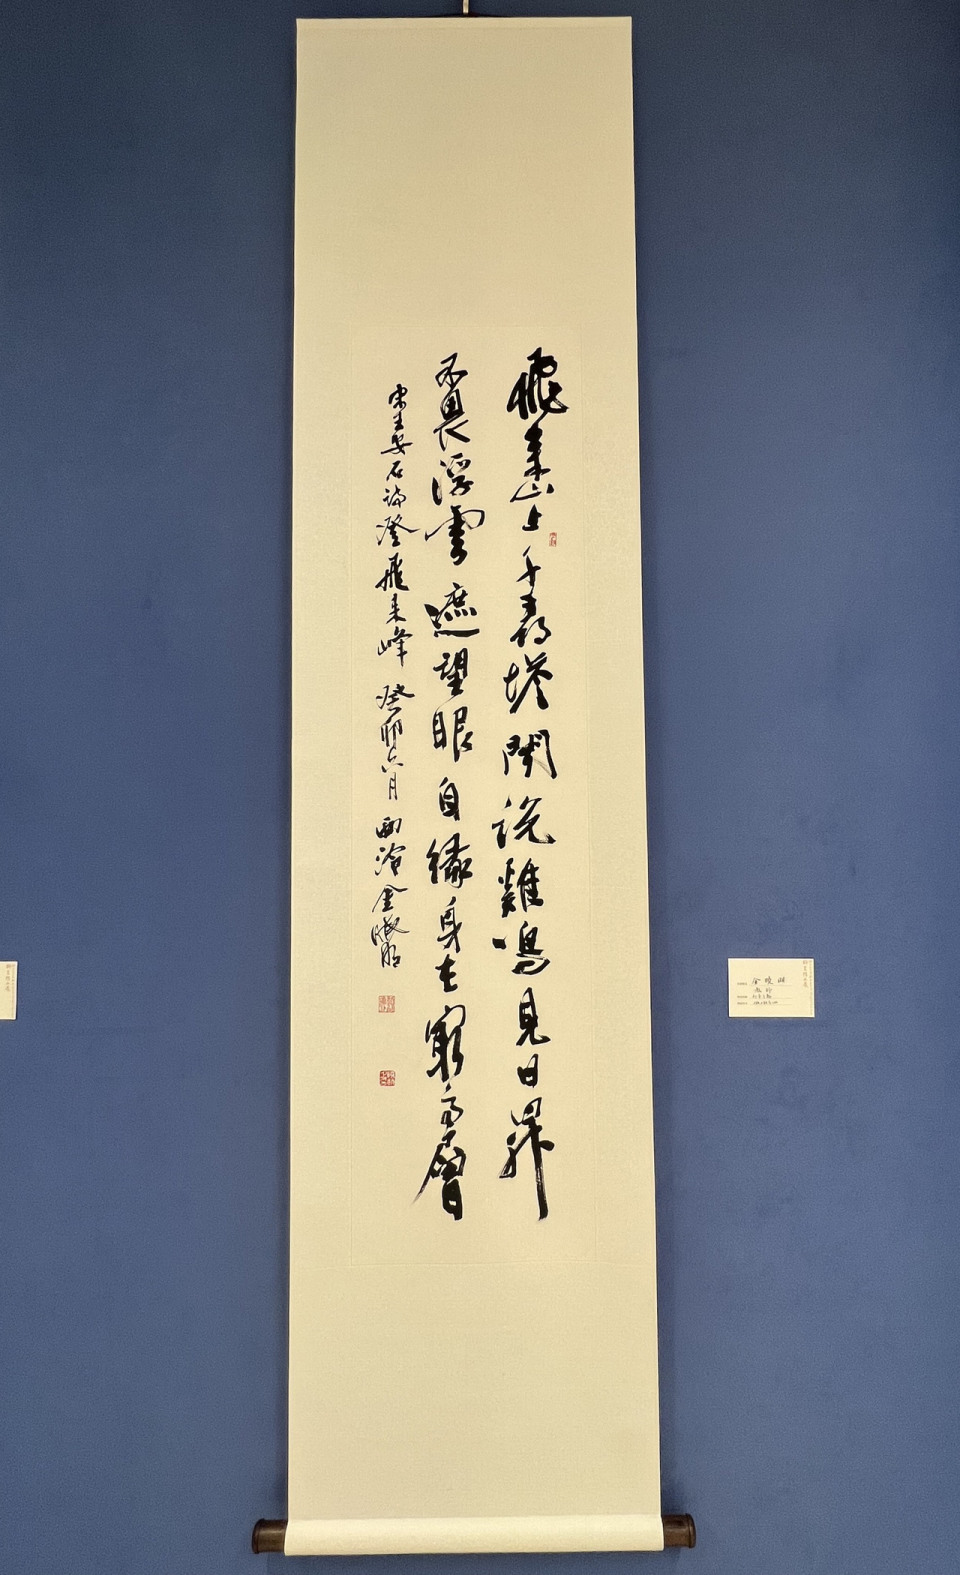 飛來山上千尋塔聞說雞鳴見日昇
不畏浮雲遮望眼自緣身在最高層
宋王安石詩登飛來峰 癸卯六月 金曉明
金曉明